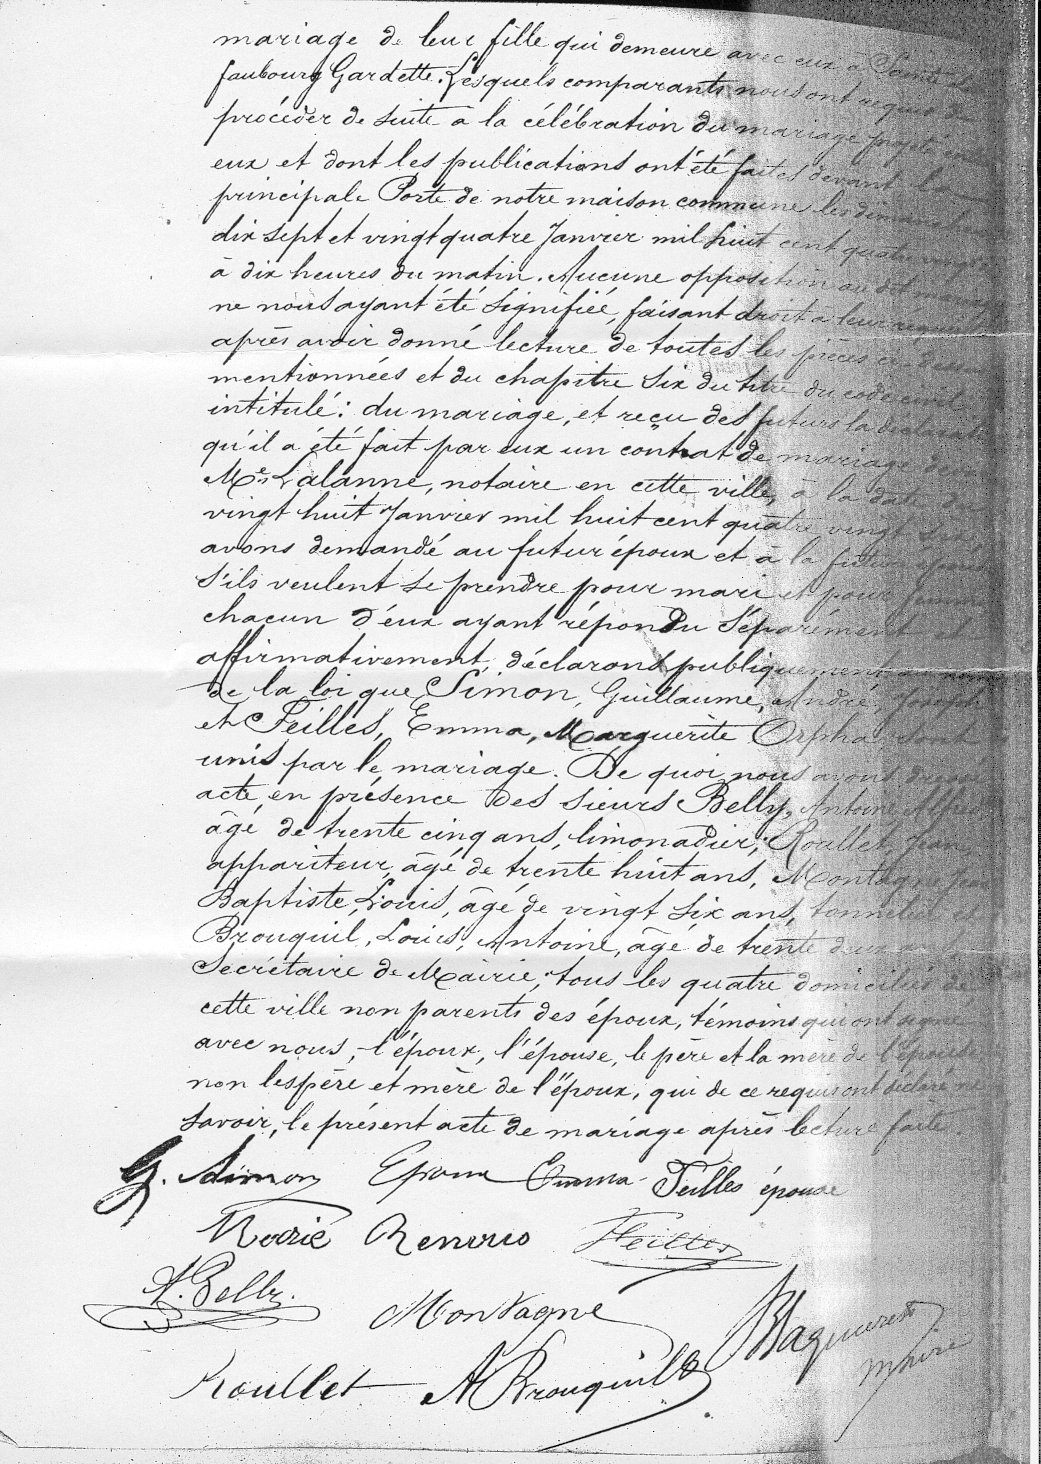 mariage de leur fille qui demeure avec eux à
faubourg Gardette. Lesquels comparants nous ont requis de
procéder de suite à la célébration du mariage projeté
eux et dont les publications ont été faites devant la
principale Porte de notre maison commune les
dix sept et vingt quatre Janvier mil huit cent quatre vingt
à dix heures du matin. Aucune opposition au dit
ne nous ayant été signifiée, faisant droit à leur
après avoir donné lecture de toutes les pièces ci dessus
mentionnées et du chapitre six du titre du code civil
intitulé : du mariage, et reçu des futurs la
qu'il a été fait par eux un contrat de mariage
Me Lalanne, notaire en cette ville, à la date
vingt huit Janvier mil huit cent quatre vingt
avons demandé au futur époux et à la future épouse
s'ils veulent se prendre pour mari et pour femme
chacun d'eux ayant répondu séparément et
affirmativement, déclarons publiquement au nom
de la loi que Simon, Guillaume, André, Joseph
et Teilles, Emma, Marguerite Orpha, sont
unis par le mariage. De quoi nous avons dressé
acte, en présence des sieurs Belly, Antoine
âgé de trente cinq ans, limonadier, Roullet, Jean
appariteur, âgé de trente huit ans, Montagne,
Baptiste, Louis, âgé de vingt six ans, tonnelier
Brouquil, Louis, Antoine, âgé de trente deux
Secrétaire de Mairie, tous les quatre domiciliés de
cette ville non parents des époux, témoins qui ont signé
avec nous, l'époux, l'épouse, le père et la mère de l'épouse
non les père et mère de l'époux, qui de ce requis ont déclaré ne
savoir, le présent acte de mariage après lecture faite
G. Simon Epoux Emma Teilles épouse
Marie Teilles
A. Belly.
Montagne
maire
Roullet A Brouquil